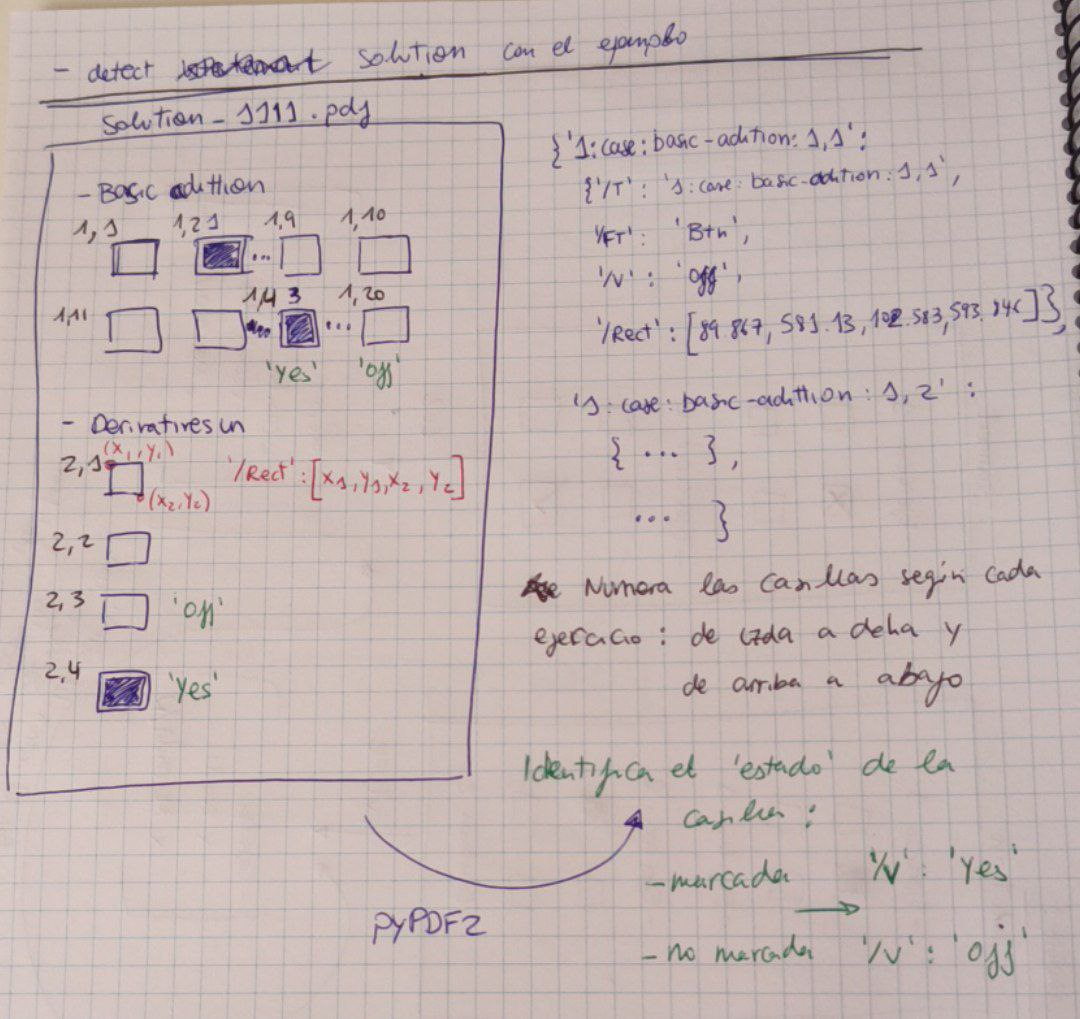 - detect solution con el ejemplo
Solution - 1111.pdf
- Basic addition
1,1 1,2 1,9 1,10
...
1,11 1,4 3 1,20
... ...
'Yes' 'Off'
- Derivatives un
(x1, y1)
2,1
'/Rect': [x1, y1, x2, y2]
(x2, y2)
2,2
2,3 'Off'
2,4 'Yes'
PyPDF2
{'1:case:basic-adition:1,1':
{'/T': '1:case:basic-adition:1,1',
'/FT': 'Btn',
'/V': 'Off',
'/Rect': [89.867, 581.13, 102.583, 593.846]},
'1:case:basic-adittion:1,2':
{ ... },
... }
Numera las casillas según cada
ejercicio: de izda a dcha y
de arriba a abajo
Identifica el 'estado' de la
casilla:
- marcada '/V': 'Yes'
- no marcada '/V': 'Off'